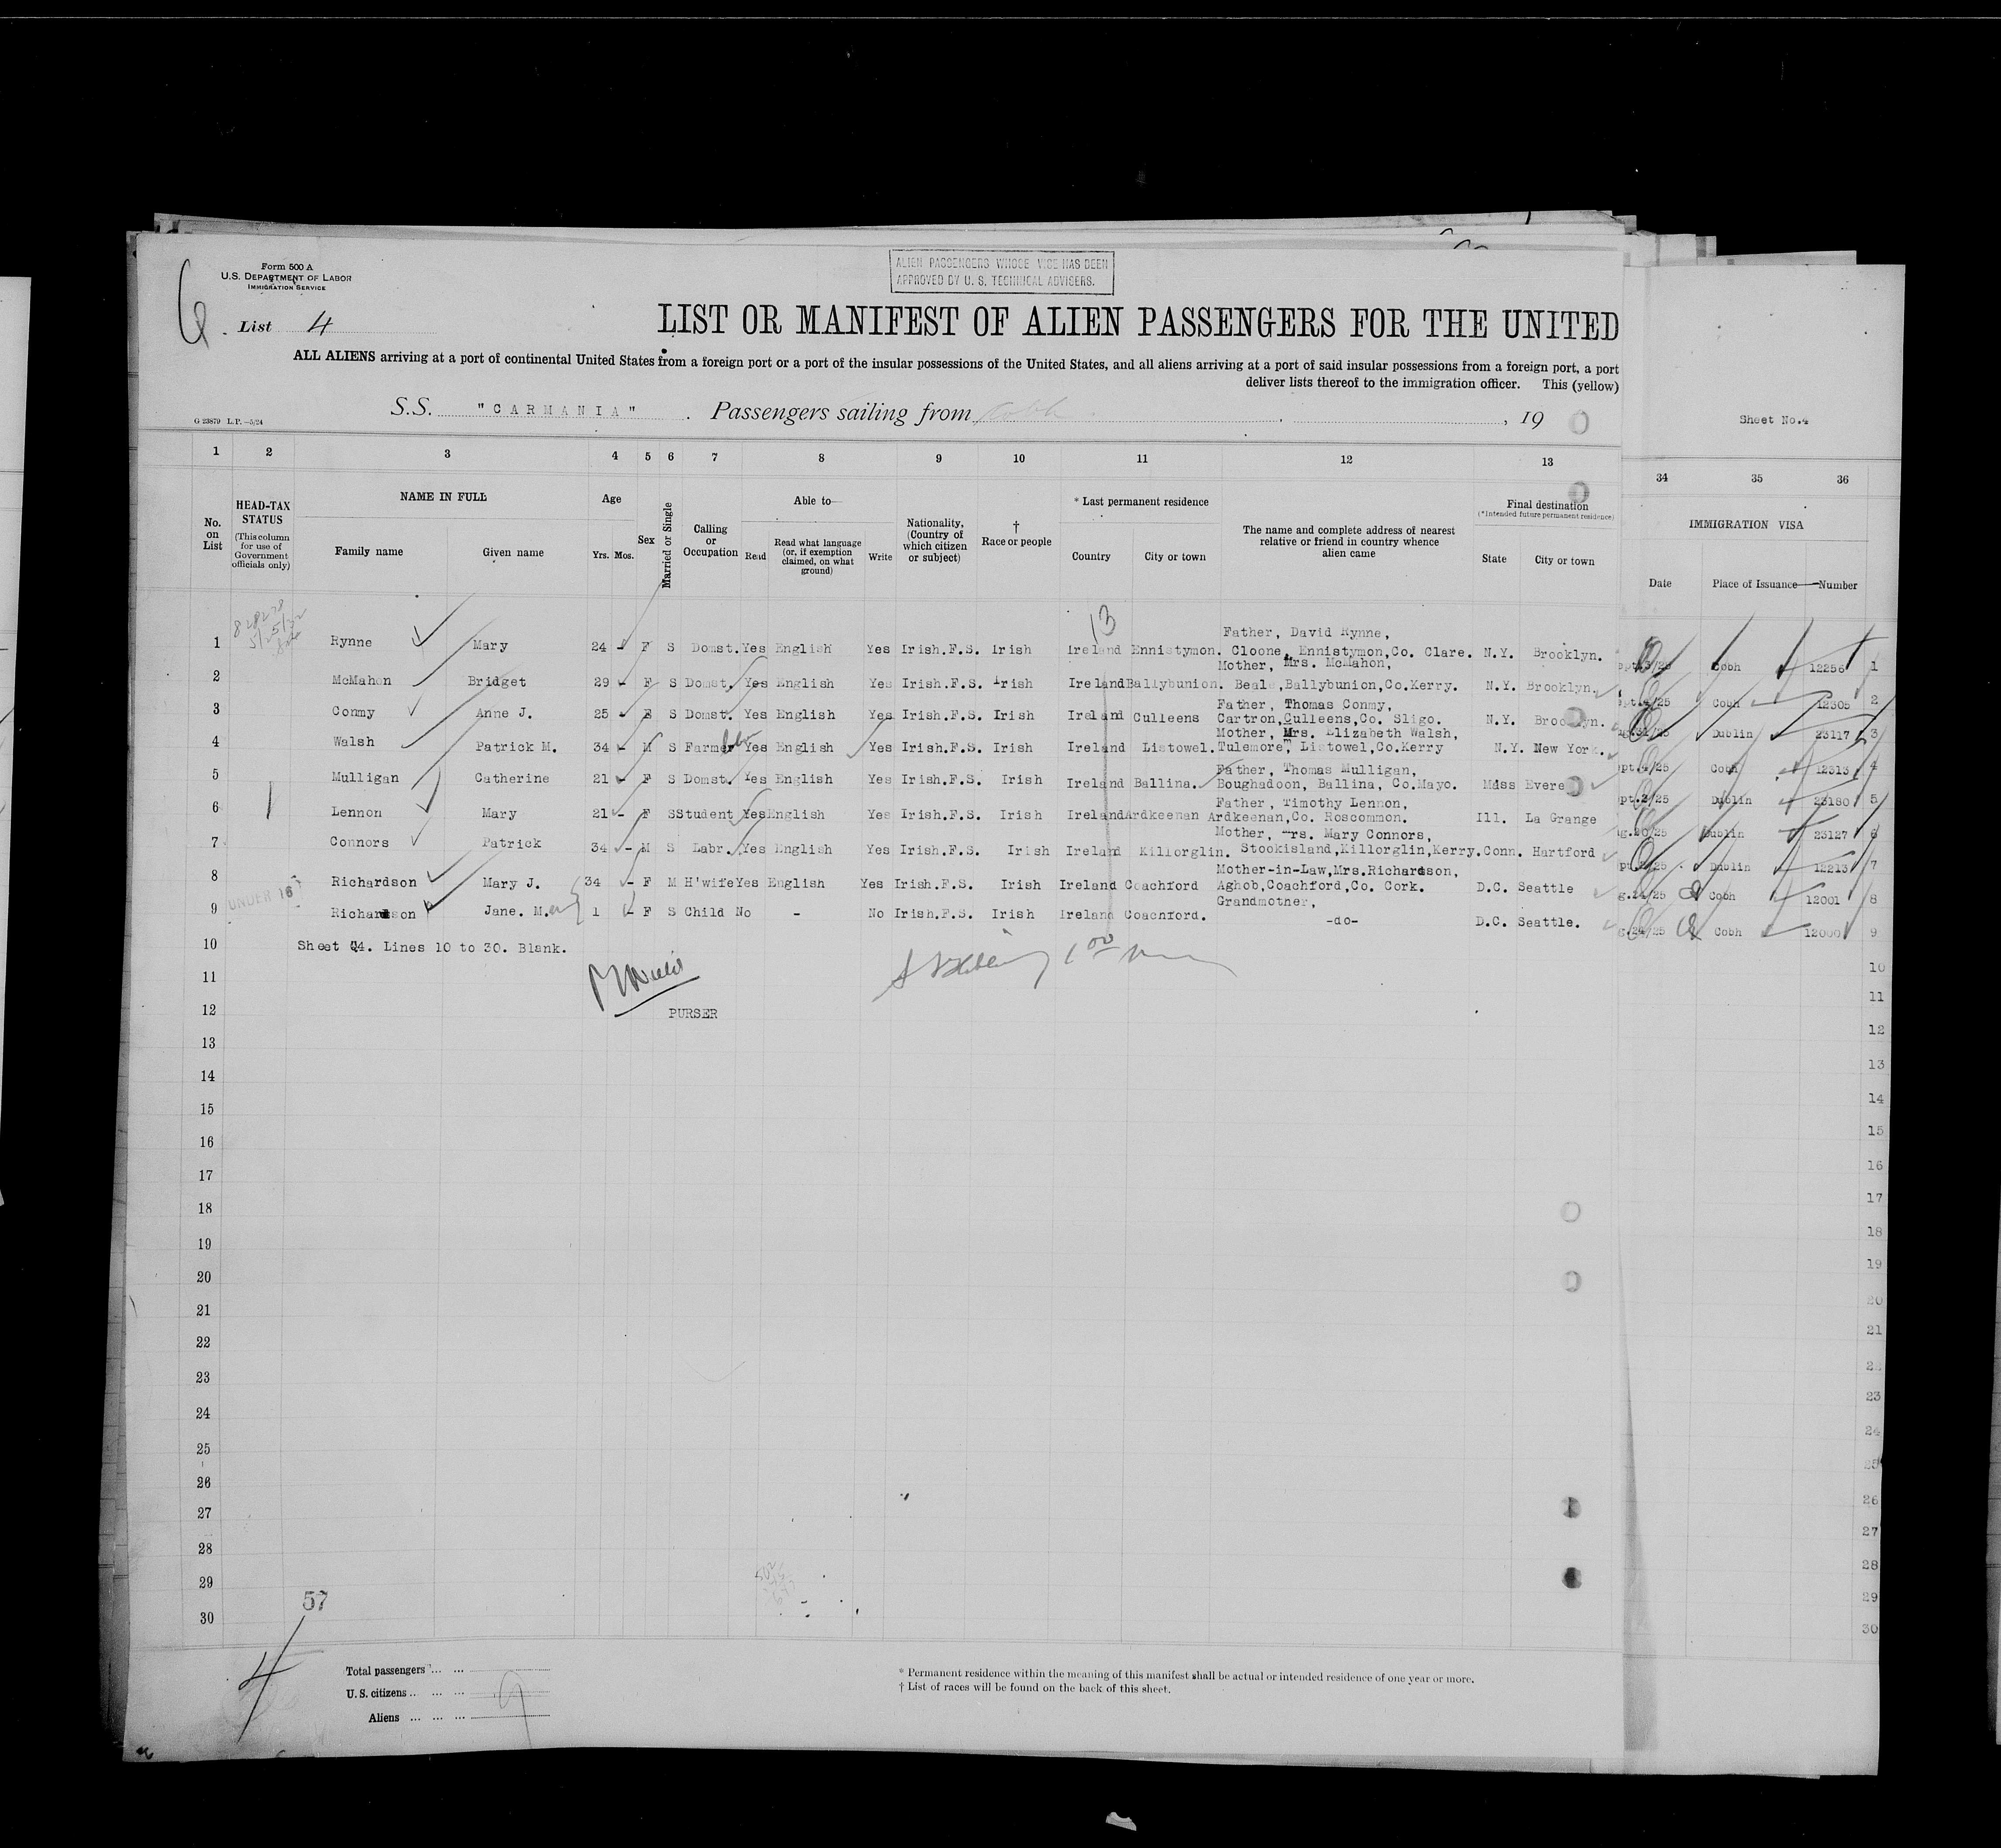 Form 500 A
U.S. DEPARTMENT OF LABOR
IMMIGRATION SERVICE
ALIEN PASSENGERS WHOSE VISE HAS BEEN
APPROVED BY U. S. TECHNICAL ADVISERS.
6
List 4
LIST OR MANIFEST OF ALIEN PASSENGERS FOR THE UNITED
ALL ALIENS arriving at a port of continental United States from a foreign port or a port of the insular possessions of the United States, and all aliens arriving at a port of said insular possessions from a foreign port, a port
deliver lists thereof to the immigration officer. This (yellow)
S.S. "CARMANIA" . Passengers sailing from Cobh , 19
G 23879 L.P.—5/24
Sheet No.4
1 2 3 4 5 6 7 8 9 10 11 12 13 34 35 36
No. on List
HEAD-TAX STATUS (This column for use of Government officials only)
NAME IN FULL
Family name Given name
Age
Yrs. Mos.
Sex
Married or Single
Calling or Occupation
Able to—
Read Read what language (or, if exemption claimed, on what ground) Write
Nationality, (Country of which citizen or subject)
† Race or people
* Last permanent residence
Country City or town
The name and complete address of nearest relative or friend in country whence alien came
Final destination
(*Intended future permanent residence)
State City or town
IMMIGRATION VISA
Date Place of Issuance Number
13
1 Rynne Mary 24 - F S Domst. Yes English Yes Irish.F.S. Irish Ireland Ennistymon. Father, David Rynne, Cloone, Ennistymon,Co. Clare. N.Y. Brooklyn. pt.3/25 Cobh 12256 1
2 McMahon Bridget 29 - F S Domst. Yes English Yes Irish.F.S. Irish Ireland Ballybunion. Mother, Mrs. McMahon, Beale,Ballybunion,Co.Kerry. N.Y. Brooklyn. pt.4/25 Cobh 12305 2
3 Conmy Anne J. 25 - F S Domst. Yes English Yes Irish.F.S. Irish Ireland Culleens Father, Thomas Conmy, Cartron,Culleens,Co. Sligo. N.Y. Brooklyn. g.31/25 Dublin 23117 3
4 Walsh Patrick M. 34 - M S Farmer Yes English Yes Irish.F.S. Irish Ireland Listowel. Mother, Mrs. Elizabeth Walsh, Tulemore, Listowel,Co.Kerry N.Y. New York. pt.4/25 Cobh 12313 4
5 Mulligan Catherine 21 - F S Domst. Yes English Yes Irish.F.S. Irish Ireland Ballina. Father, Thomas Mulligan, Boughadoon, Ballina, Co.Mayo. Mass Evere pt.2/25 Dublin 23180 5
6 Lennon Mary 21 - F S Student Yes English Yes Irish.F.S. Irish Ireland Ardkeenan Father, Timothy Lennon, Ardkeenan,Co. Roscommon. Ill. La Grange g.20/25 Dublin 23127 6
7 Connors Patrick 34 - M S Labr. Yes English Yes Irish.F.S. Irish Ireland Killorglin. Mother, Mrs. Mary Connors, Stookisland,Killorglin,Kerry. Conn. Hartford Dublin 12213 7
8 Richardson Mary J. 34 - F M H'wife Yes English Yes Irish.F.S. Irish Ireland Coachford Mother-in-Law,Mrs.Richardson, Aghob,Coachford,Co. Cork. D.C. Seattle g.24/25 Cobh 12001 8
UNDER 16
9 Richardson Jane. M. 1 - F S Child No - No Irish.F.S. Irish Ireland Coachford. Grandmother, -do- D.C. Seattle. g.24/25 Cobh 12000 9
10 Sheet 4. Lines 10 to 30. Blank. 10
11 11
12 PURSER 12
13 13
14 14
15 15
16 16
17 17
18 18
19 19
20 20
21 21
22 22
23 23
24 24
25 25
26 26
27 27
28 28
29 29
30 30
57
4
Total passengers
U. S. citizens
Aliens
9
* Permanent residence within the meaning of this manifest shall be actual or intended residence of one year or more.
† List of races will be found on the back of this sheet.